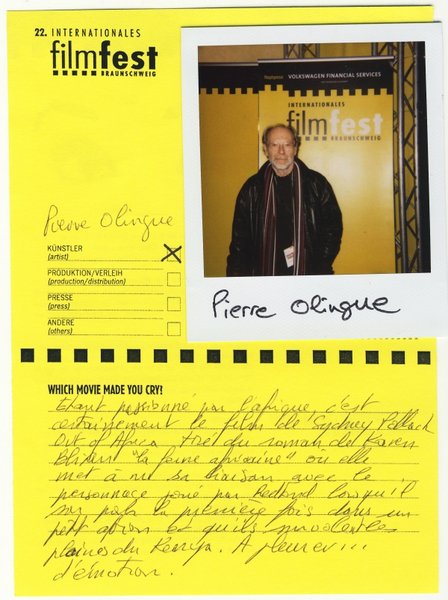 22. INTERNATIONALES
filmfest
BRAUNSCHWEIG
Hauptsponsor VOLKSWAGEN FINANCIAL SERVICES
INTERNATIONALES
filmfest
BRAUNSCHWEIG
Pierre Olingue
KÜNSTLER
(artist)
PRODUKTION/VERLEIH
(production/distribution)
PRESSE
(press)
ANDERE
(others)
Pierre Olingue
WHICH MOVIE MADE YOU CRY?
Etant passionné par l'afrique c'est
certainement le film de Sydney Pollack
Out of Africa tiré du roman de Karen
Blixen "la ferme africaine" où elle
met à nu sa liaison avec le
personnage joué par Redford lorsqu'il
pour la première fois dans un
petit avion et qu'ils survolent les
plaines du Kenya. A pleurer...
d'émotion.